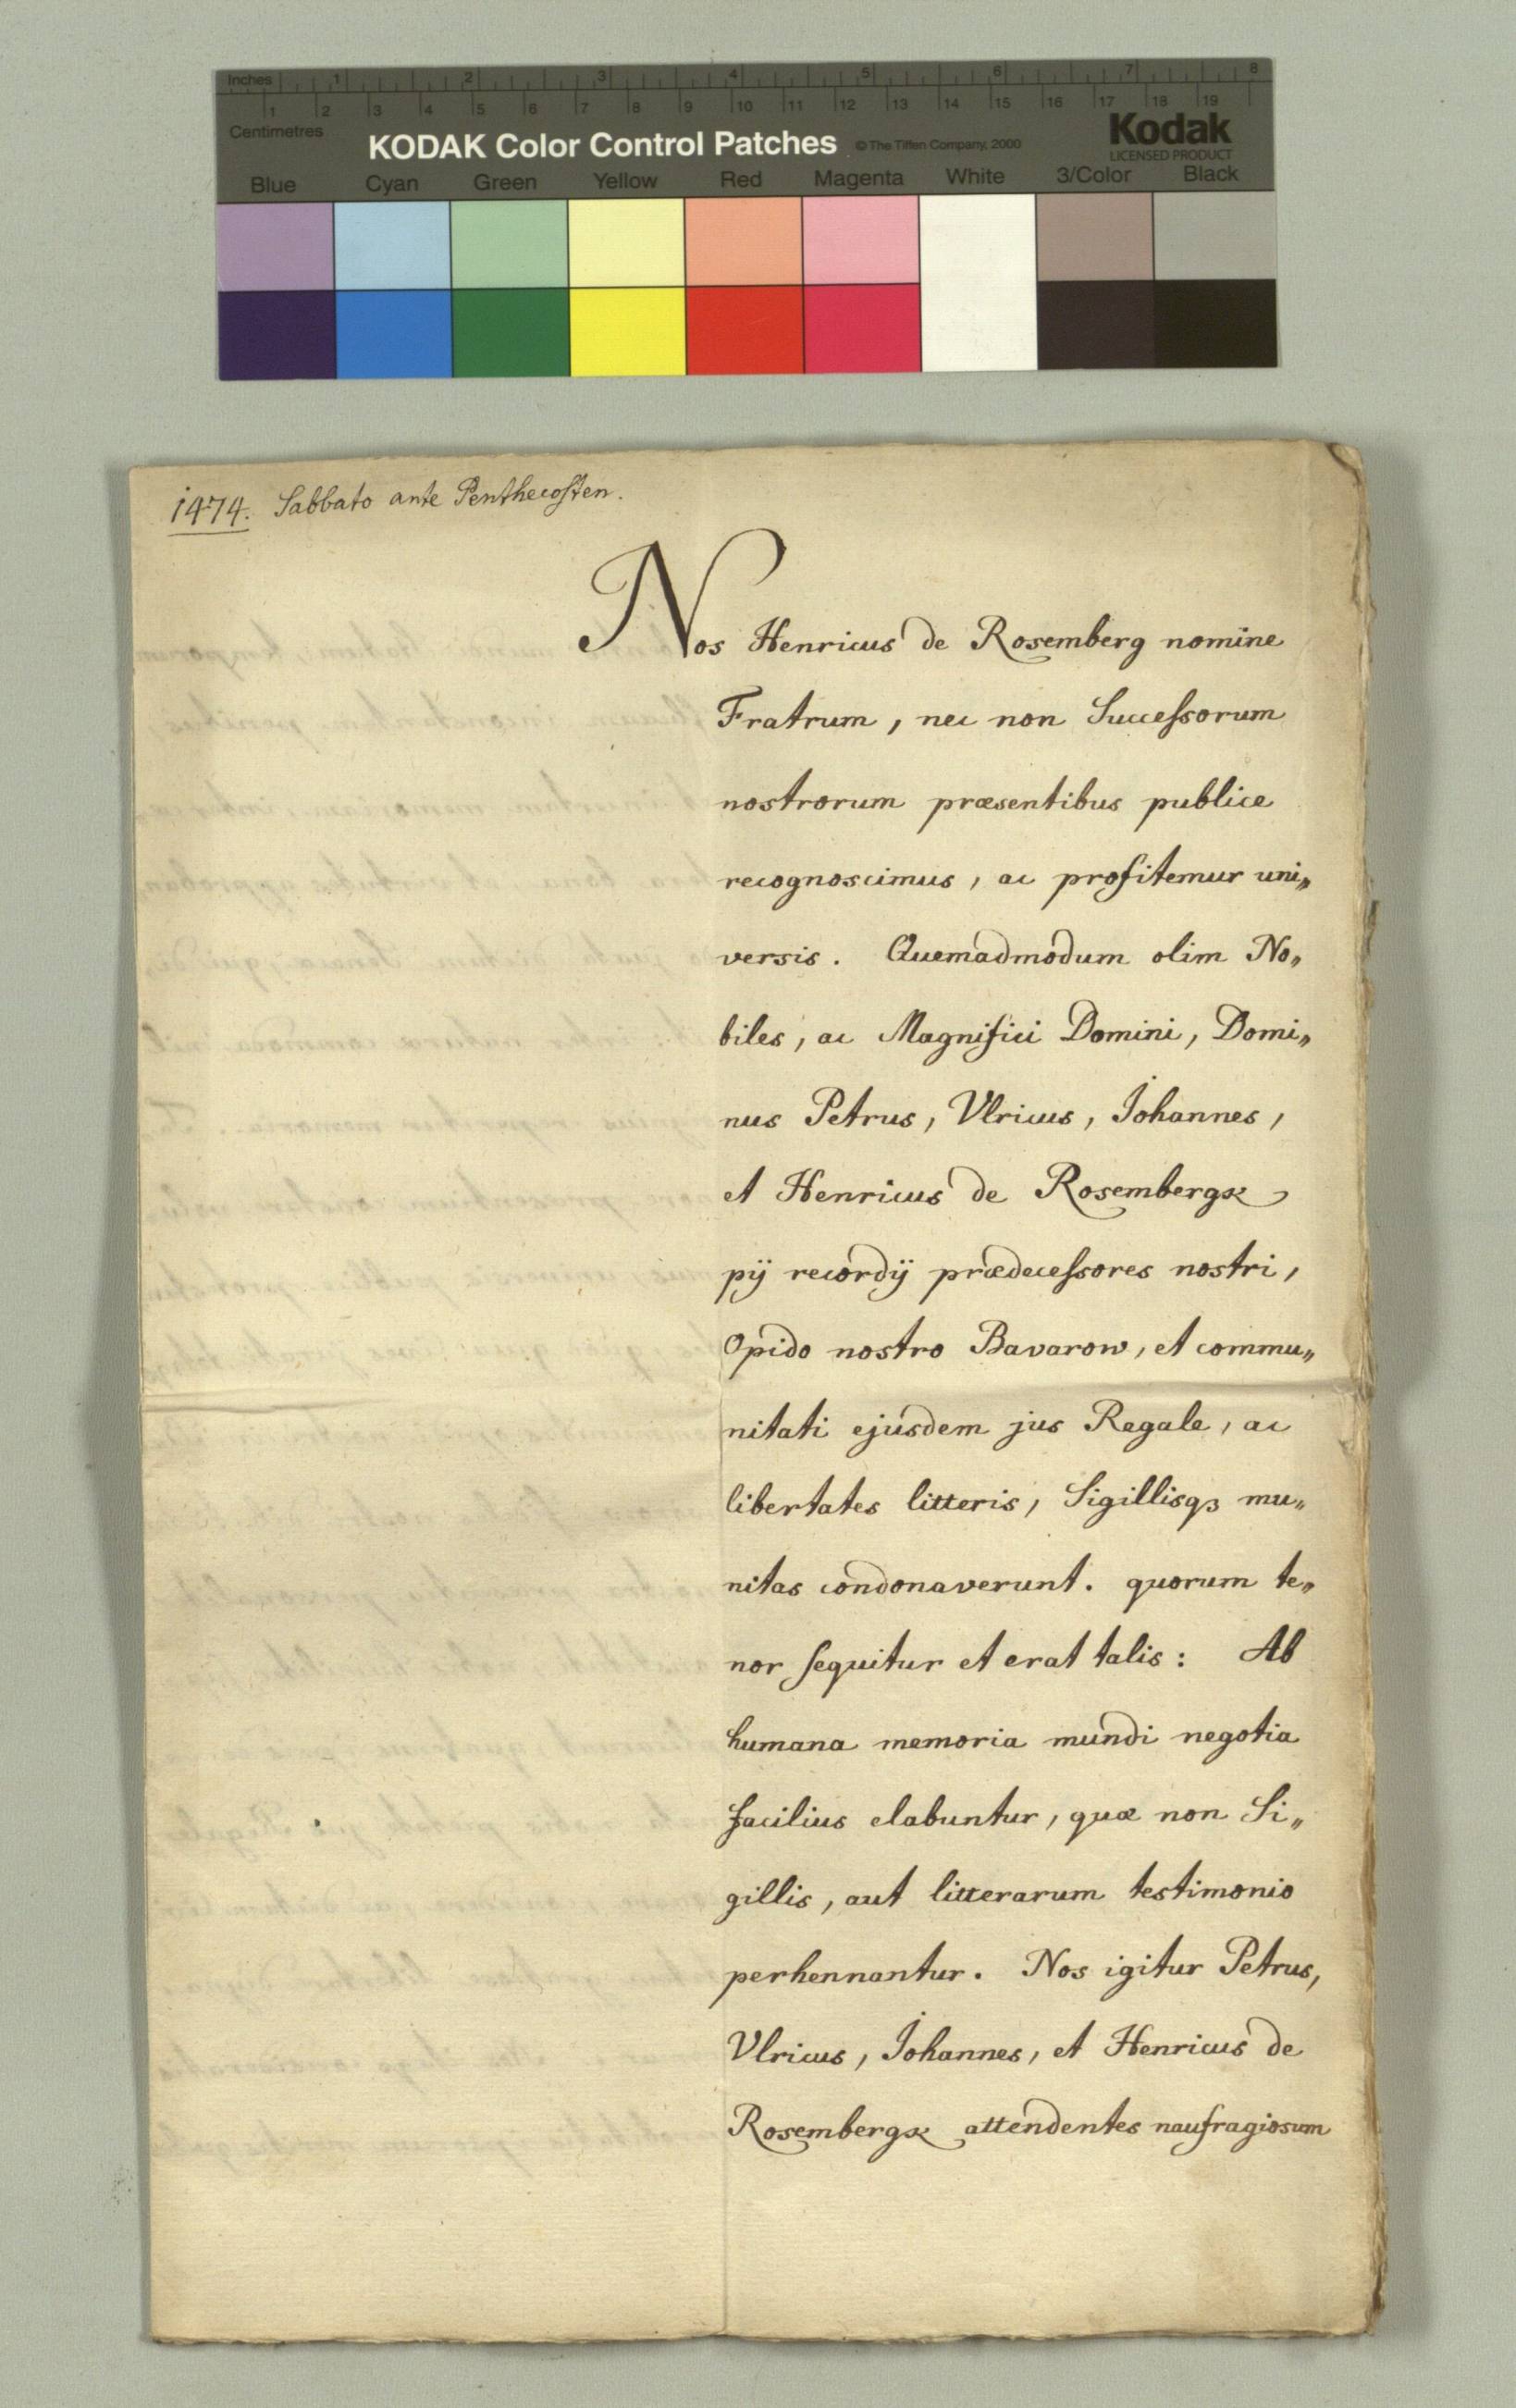 Inches 1 2 3 4 5 6 7 8
1 2 3 4 5 6 7 8 9 10 11 12 13 14 15 16 17 18 19
Centimetres
KODAK Color Control Patches © The Tiffen Company, 2000 Kodak
LICENSED PRODUCT
Blue Cyan Green Yellow Red Magenta White 3/Color Black
1474. Sabbato ante Penthecosten.
Nos Henricus de Rosemberg nomine
Fratrum, nec non Successorum
nostrorum præsentibus publice
recognoscimus, ac profitemur uni„
versis. Quemadmodum olim No„
biles, ac Magnifici Domini, Domi„
nus Petrus, Vlricus, Johannes,
et Henricus de Rosembergk
pij recordij prædecessores nostri,
Opido nostro Bavarow, et commu„
nitati ejusdem jus Regale, ac
libertates litteris, Sigillisqꝫ mu„
nitas condonaverunt. quorum te„
nor sequitur et erat talis: Ab
humana memoria mundi negotia
facilius elabuntur, quæ non Si„
gillis, aut litterarum testimonio
perhennantur. Nos igitur Petrus,
Vlricus, Johannes, et Henricus de
Rosembergk attendentes naufragiosum